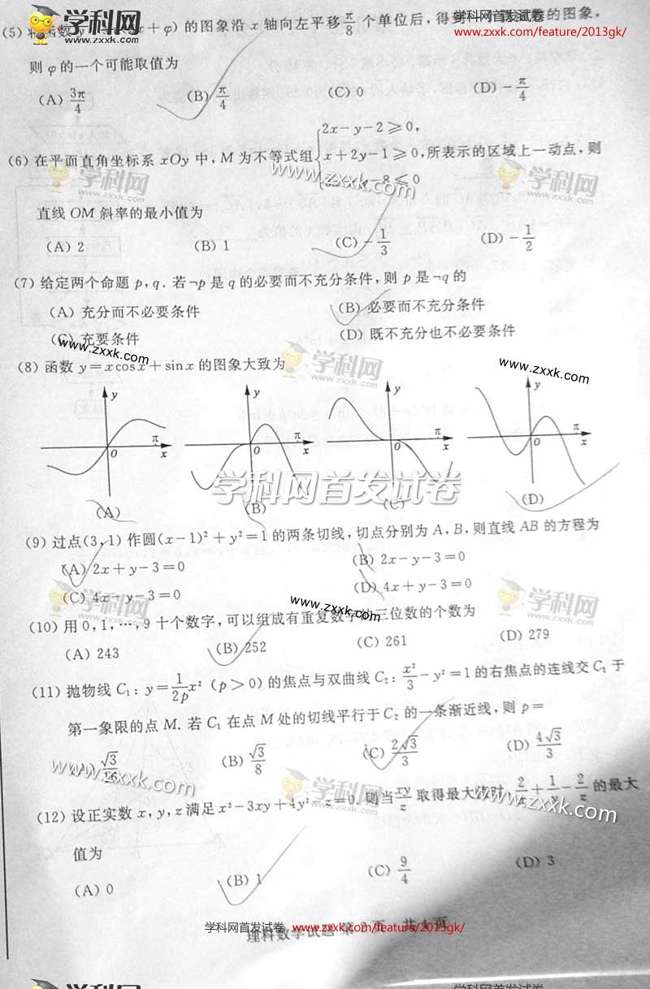 学科网
www.zxxk.com
学科网首发试卷
www.zxxk.com/feature/2013gk/
(5) 将函数 x+φ) 的图象沿 x 轴向左平移 π/8 个单位后, 得 的图象,
则 φ 的一个可能取值为
(A) 3π/4 (B) π/4 (C) 0 (D) -π/4
(6) 在平面直角坐标系 xOy 中, M 为不等式组 { 2x-y-2≥0, x+2y-1≥0, -8≤0 所表示的区域上一动点, 则
学科网
www.zxxk.com
www.zxxk.com
学科网
www.zxxk.com
直线 OM 斜率的最小值为
(A) 2 (B) 1 (C) -1/3 (D) -1/2
(7) 给定两个命题 p, q. 若¬p 是 q 的必要而不充分条件, 则 p 是¬q 的
(A) 充分而不必要条件 (B) 必要而不充分条件
(C) 充要条件 (D) 既不充分也不必要条件
www.zxxk.com
学科网
www.zxxk.com
www.zxxk.com
(8) 函数 y=xcosx+sinx 的图象大致为
y π O x y π O x y π O x y π O x
学科网首发试卷
(A) (B) (C) (D)
(9) 过点(3,1) 作圆(x-1)²+y²=1 的两条切线, 切点分别为 A, B, 则直线 AB 的方程为
(A) 2x+y-3=0 (B) 2x-y-3=0
(C) 4x-y-3=0 (D) 4x+y-3=0
学科网
www.zxxk.com
www.zxxk.com
学科网
www.zxxk.com
(10) 用 0, 1, …, 9 十个数字, 可以组成有重复数字的三位数的个数为
(A) 243 (B) 252 (C) 261 (D) 279
(11) 抛物线 C₁: y=1/2p x² (p>0) 的焦点与双曲线 C₂: x²/3-y²=1 的右焦点的连线交 C₁ 于
第一象限的点 M. 若 C₁ 在点 M 处的切线平行于 C₂ 的一条渐近线, 则 p=
(A) √3/16 (B) √3/8 (C) 2√3/3 (D) 4√3/3
www.zxxk.com
学科网
www.zxxk.com
www.zxxk.com
(12) 设正实数 x, y, z 满足 x²-3xy+4y²-z=0, 则当 xy/z 取得最大值时, 2/x+1/y-2/z 的最大
值为
(A) 0 (B) 1 (C) 9/4 (D) 3
学科网首发试卷 www.zxxk.com/feature/2013gk/
理科数学试题 第 2 页 共 4 页
学科网
学科网首发试卷